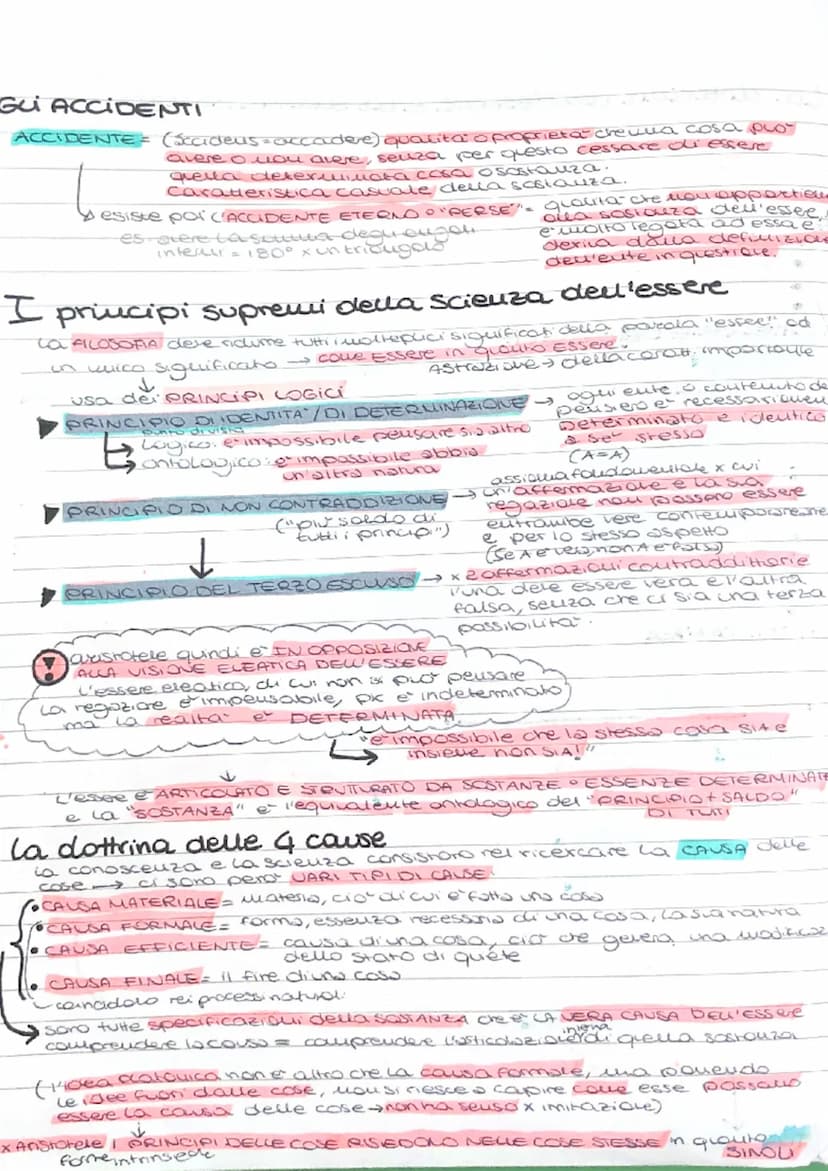 GLI ACCIDENTI
ACCIDENTE = (accideus = accadere) qualità o proprietà che una cosa può
avere o non avere, senza per questo cessare di essere
quella determinata cosa o sostanza.
Caratteristica casuale della sostanza.
esiste poi l'"ACCIDENTE ETERNO o "PERSE" = qualità che non appartien
alla sostanza dell'essere,
es. avere la somma degli angoli
è molto legata ad essa e
interni = 180° x un triangolo
deriva dalla definizione
dell'ente in questione.
I principi supremi della scienza dell'essere
La FILOSOFIA deve ridurre tutti i molteplici significati della parola "essere" ad
un unico significato → come Essere in quanto Essere
Astrazione → della caratt. importante
usa dei PRINCIPI LOGICI
PRINCIPIO DI IDENTITÀ / DI DETERMINAZIONE → ogni ente o contenuto de
pensiero è necessariamen
punto di vista
logico: è impossibile pensare sia altro
Determinato e identico
a se stesso
ontologico: è impossibile abbia
un'altra natura
(A=A)
PRINCIPIO DI NON CONTRADDIZIONE → assioma fondamentale x cui
un'affermazione e la sua
negazione non possono essere
("più saldo di
tutti i principi")
entrambe vere contemporaneame
e per lo stesso aspetto
(se A è vero, non A è falso)
PRINCIPIO DEL TERZO ESCLUSO → x 2 affermazioni contraddittorie
l'una deve essere vera e l'altra
falsa, senza che ci sia una terza
possibilità.
! aristotele quindi è IN OPPOSIZIONE
ALLA VISIONE ELEATICA DELL'ESSERE
L'essere eleatico, di cui non si può pensare
la negazione è impensabile, pk è indeterminato
ma la realtà è DETERMINATA
"è impossibile che la stessa cosa SIA e
insieme non SIA!"
L'essere è ARTICOLATO E STRUTTURATO DA SOSTANZE o ESSENZE DETERMINATE
e la "SOSTANZA" è l'equivalente ontologico del "PRINCIPIO + SALDO"
DI TUTTI
La dottrina delle 4 cause
La conoscenza e la scienza consistono nel ricercare la CAUSA delle
cose → ci sono però VARI TIPI DI CAUSE
• CAUSA MATERIALE = materia, ciò di cui è fatta una cosa
• CAUSA FORMALE = forma, essenza necessaria di una cosa, la sua natura
• CAUSA EFFICIENTE = causa di una cosa, ciò che genera una modificaz
dello stato di quiete
• CAUSA FINALE = il fine di una cosa
coincidono nei processi naturali
sono tutte specificazioni della SOSTANZA che è LA VERA CAUSA DELL'ESSERE
comprendere la causa = comprendere l'articolazione interna di quella sostanza
(l'idea platonica non è altro che la causa formale, ma ponendo
le idee fuori dalle cose, non si riesce a capire come esse possano
essere la causa delle cose → non ha senso x imitazione)
x Aristotele i PRINCIPI DELLE COSE RISIEDONO NELLE COSE STESSE in quanto
forme intrinseche
SINOLI